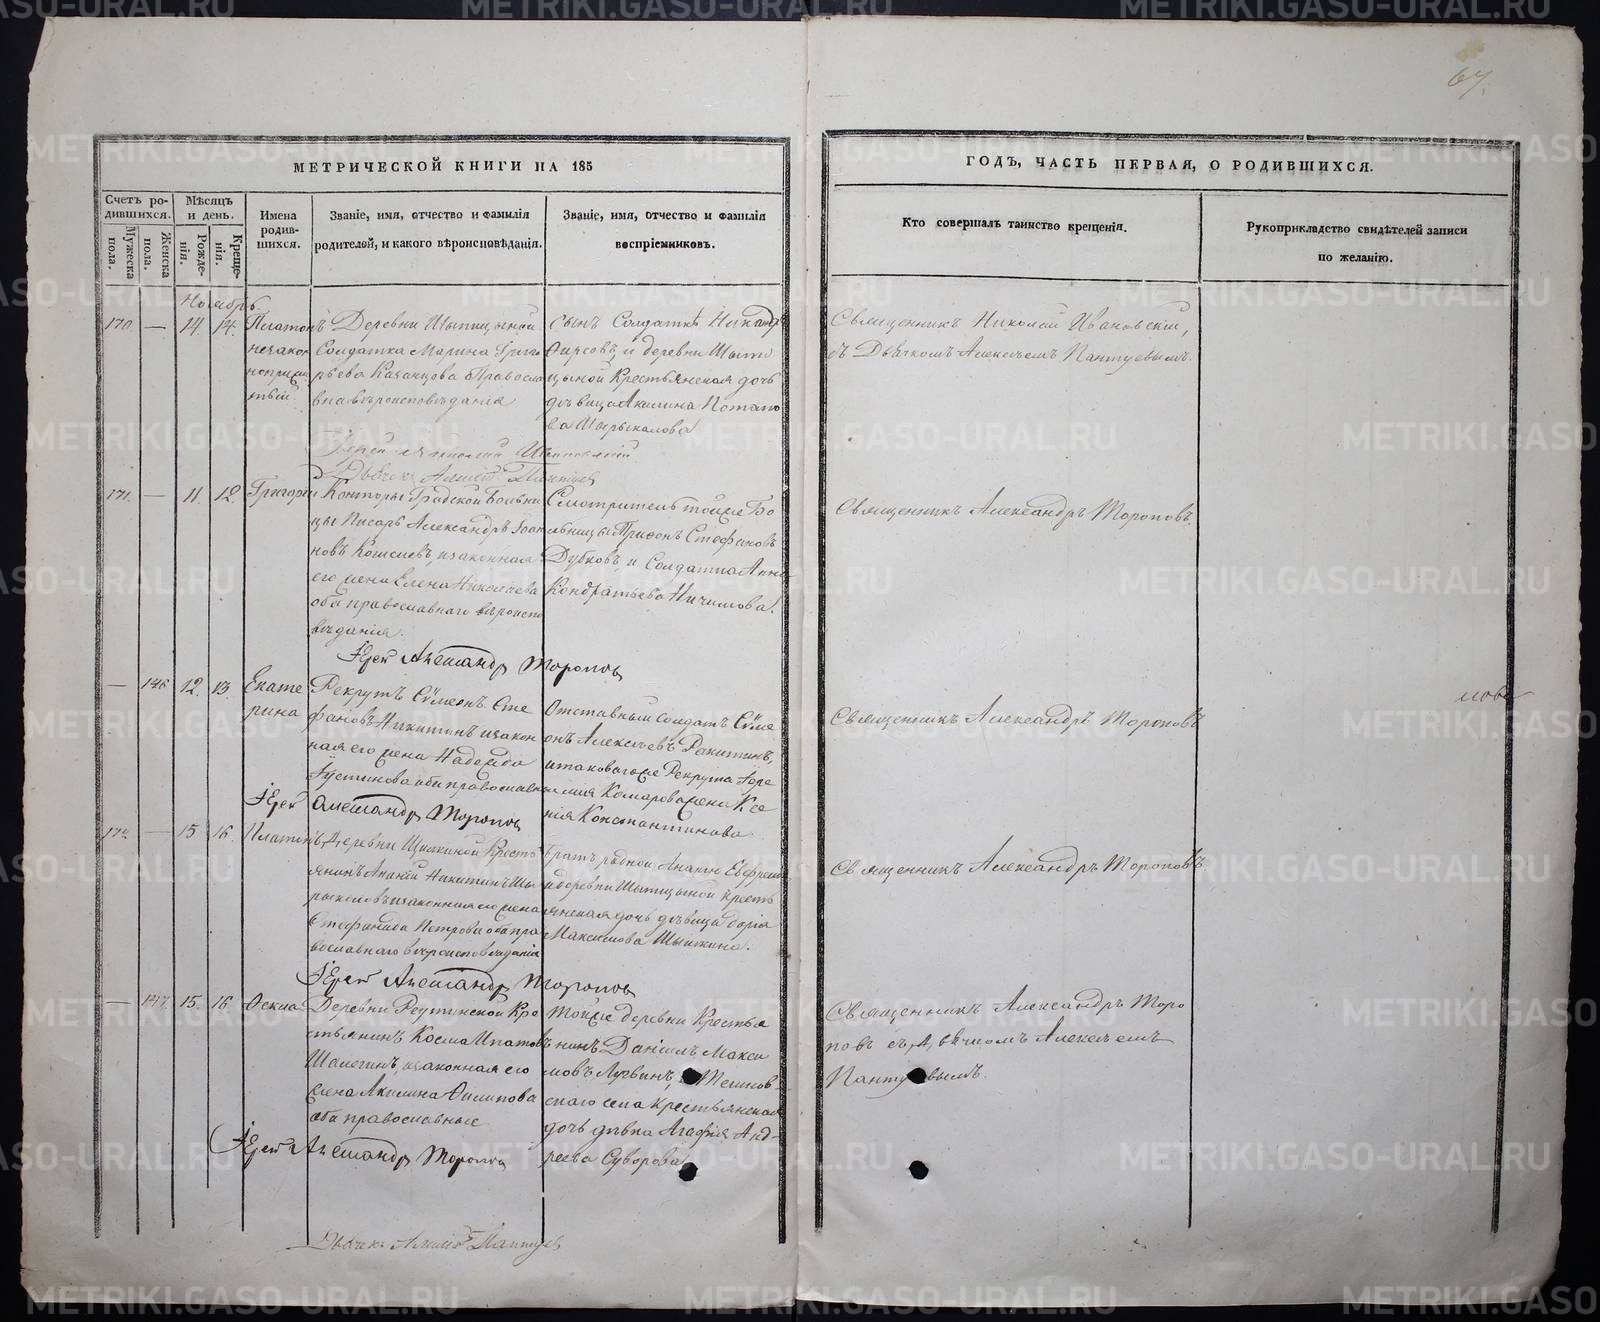 67.
МЕТРИЧЕСКОЙ КНИГИ НА 185
Счетъ ро-
дившихся.
Мужеска
пола.
Женска
пола.
Мѣсяцъ
и день.
Рожде-
нія.
Креще-
нія.
Имена
родив-
шихся.
Званіе, имя, отчество и фамилія
родителей, и какого вѣроисповѣданія.
Званіе, имя, отчество и фамилія
воспріемниковъ.
ГОДЪ, ЧАСТЬ ПЕРВАЯ, О РОДИВШИХСЯ.
Кто совершалъ таинство крещенія.
Рукоприкладство свидѣтелей записи
по желанію.
Ноябрь
170. — 14. 14.
Платонъ
незакон
Деревни
Солдатка Марина Григо
рьева Казанцова Правосла
вна вѣроисповѣданія
Сынъ Солдаткѣ Никандръ
Фирсовъ, и деревни
цыной Крестьянская дочь
дѣвица Акилина Потапо
ва
Священникъ Николай Ивановскій,
съ Дьячкомъ Алексѣемъ Пантуевымъ.
Іерей Николай Ивановскій
Дьячекъ Алексѣй Пантуевъ
171. — 11. 12.
Григорій
Конторы Градской Больни
цы Писарь Александръ Іоан
новъ и законная
его жена Елена Николаева
оба православнаго вѣроиспо
вѣданія.
Смотритель тойже Бо
льницы Трифонъ Стефановъ
Дубковъ и Солдатка Анна
Кондратьева
Священникъ Александръ Тороповъ.
Іерей Александръ Тороповъ
— 146. 12. 13.
Екате
рина
Рекрутъ Сѵмеонъ Сте
фановъ Никитинъ и закон
ная его жена Надежда
Іустинова оба православн
Отставный солдатъ Сѵме
онъ Алексѣевъ Ракитинъ,
и таковагоже Рекрута Іере
мия Комарова жена Ксе
нія Константинова
Священникъ Александръ Тороповъ
Іерей Александръ Тороповъ
172. — 15. 16.
Платонъ
Деревни Кресть
янинъ Ананій Никитинъ
и законная его жена
Стефанида Петрова оба пра
вославнаго вѣроисповѣданія
Братъ родной Ананія
и деревни кресть
янская дочь дѣвица Дарія
Максимова
Священникъ Александръ Тороповъ.
Іерей Александръ Тороповъ
— 147. 15. 16.
Ѳекла
Деревни Реутинской Кре
стьянинъ Косма Ипатовъ
и законная его
жена Акилина Филипова
оба православные
Тойже деревни Крестья
нинъ Даніилъ Макси
мовъ
скаго села крестьянская
дочь дѣвка Агафія Анд-
реева Суворова
Священникъ Александръ Торо
повъ съ дьячкомъ Алексѣемъ
Пантуевымъ.
Іерей Александръ Тороповъ
Дьячекъ Алексѣй Пантуевъ
METRIKI.GASO-URAL.RU